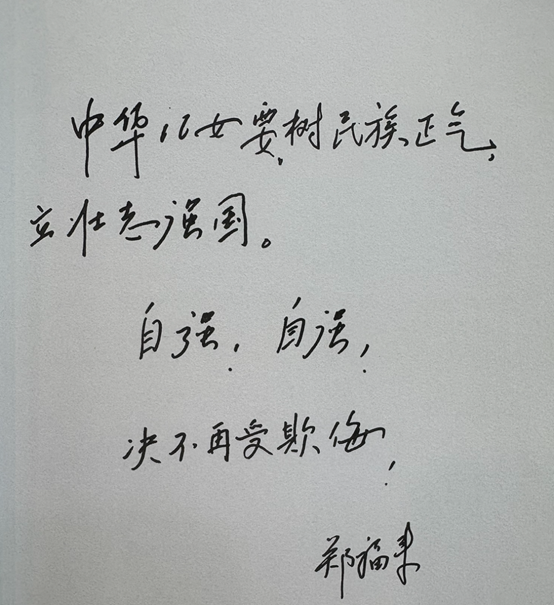 中华儿女要树民族正气,
立壮志强国。
自强,自强,
决不再受欺侮!
郑福来